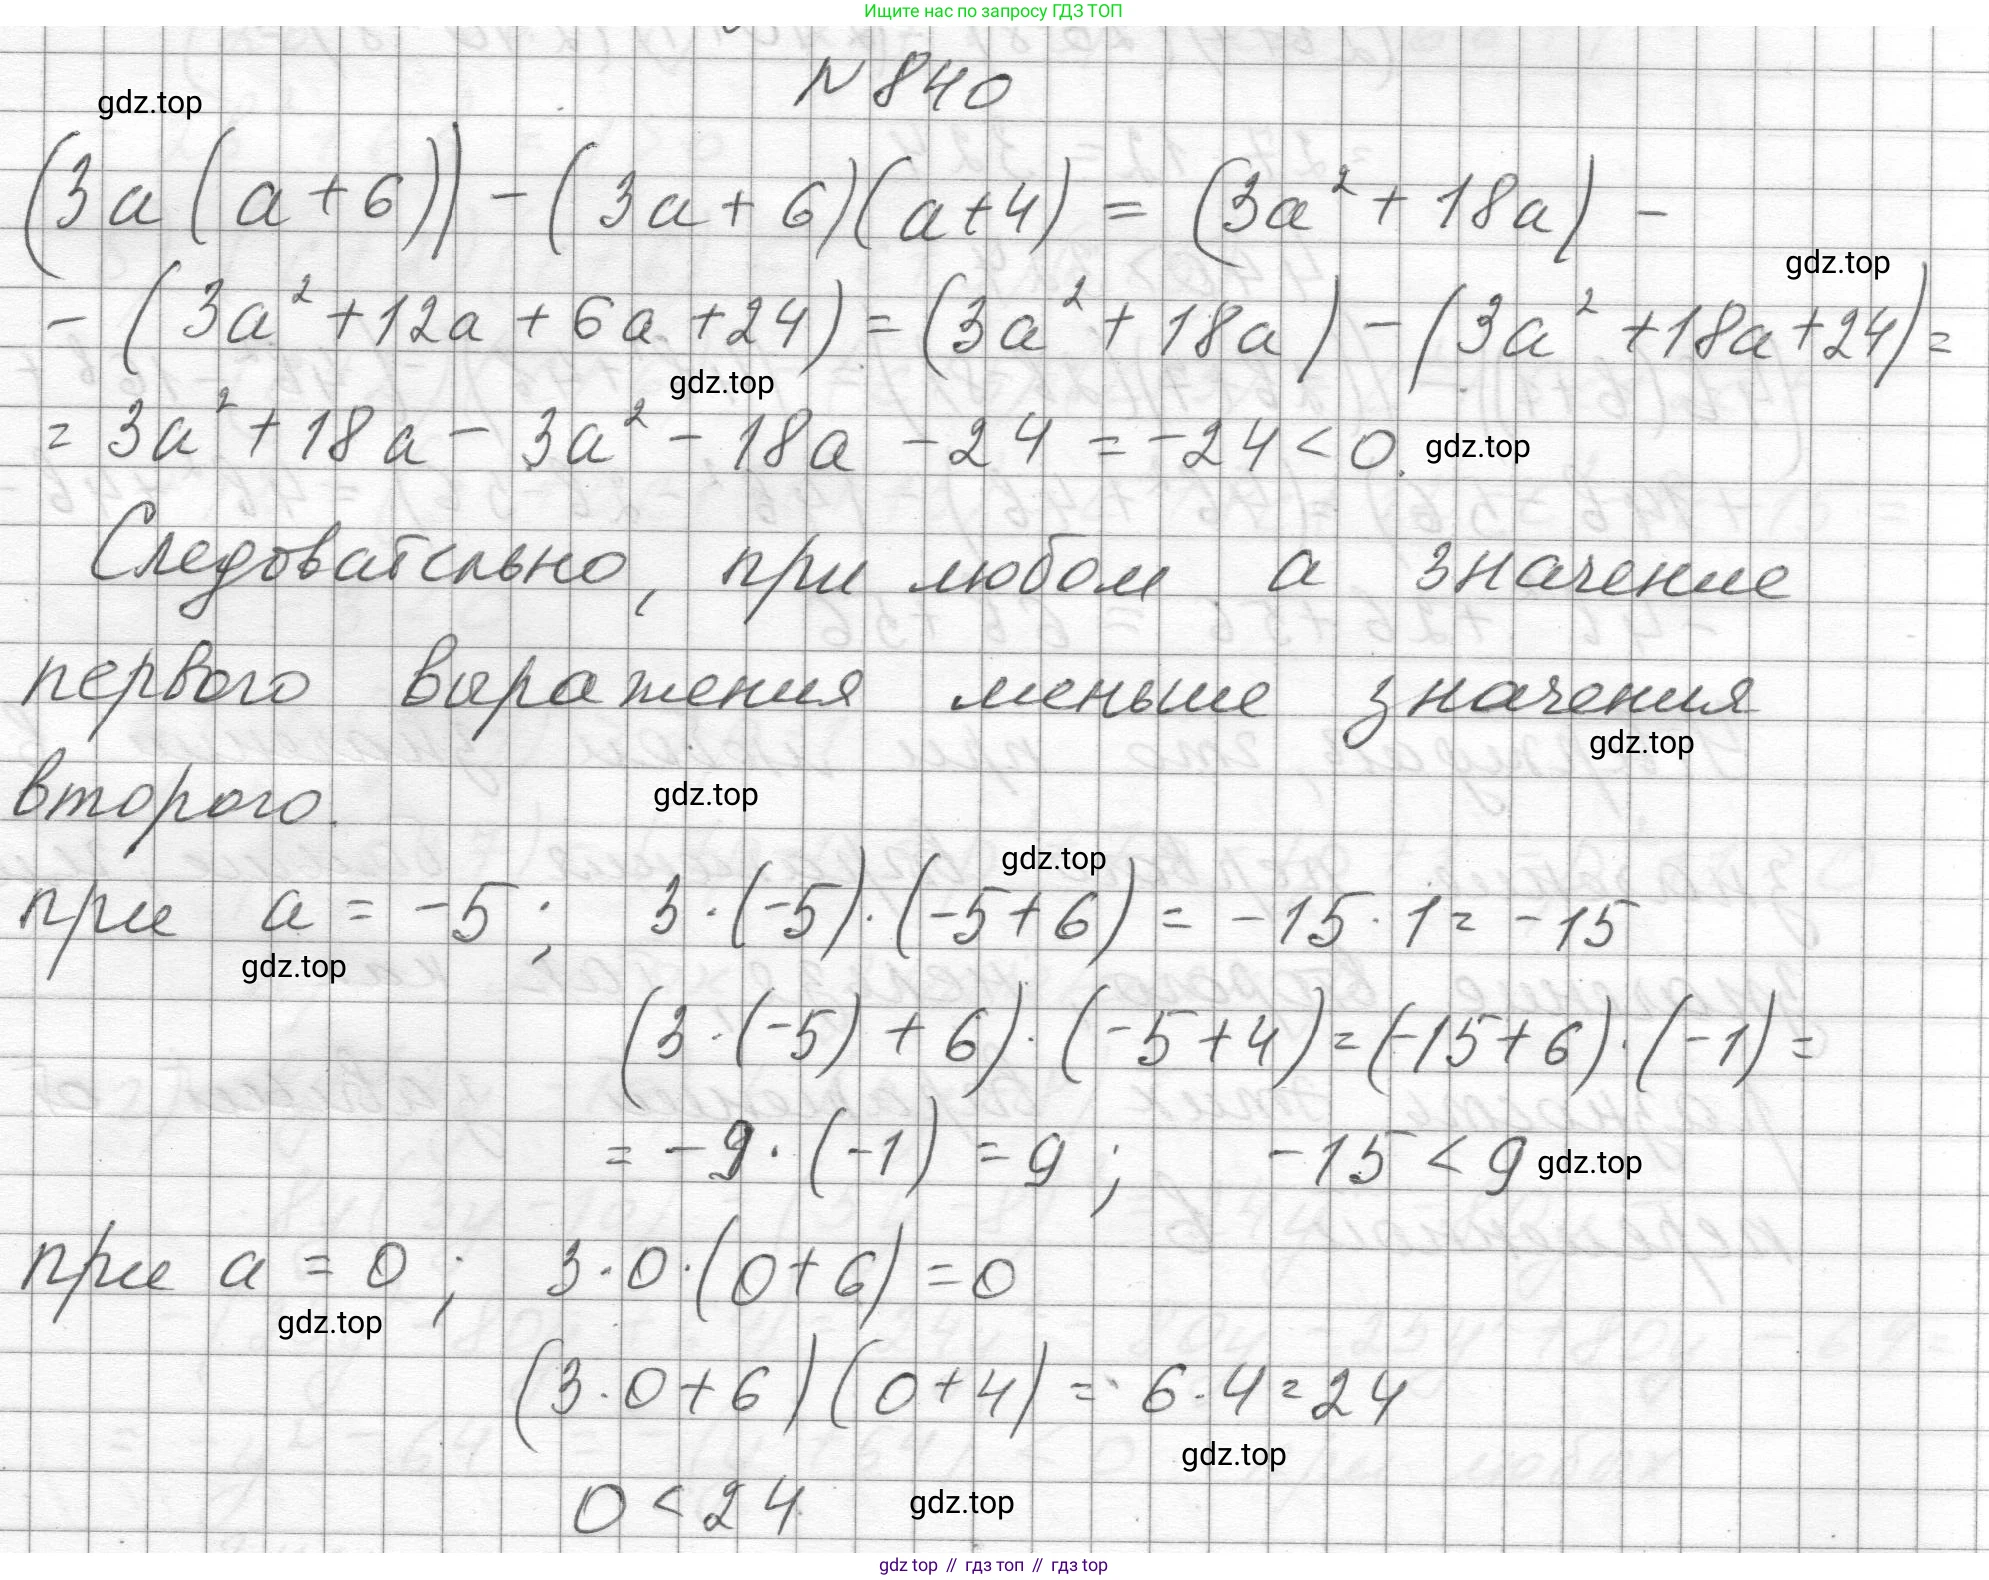 Ищите нас по запросу ГДЗ ТОП
№ 840
gdz.top
(3a(a+6)) - (3a+6)(a+4) = (3a² + 18a) -
gdz.top
- (3a² + 12a + 6a + 24) = (3a² + 18a) - (3a² + 18a + 24) =
gdz.top
= 3a² + 18a - 3a² - 18a - 24 = -24 < 0. gdz.top
Следовательно, при любом a значение
первого выражения меньше значения
gdz.top
второго.
gdz.top
gdz.top
при a = -5; 3·(-5)·(-5+6) = -15·1 = -15
gdz.top
(3·(-5) + 6)·(-5+4) = (-15+6)·(-1) =
= -9·(-1) = 9; -15 < 9 gdz.top
при a = 0; 3·0·(0+6) = 0
gdz.top
(3·0+6)(0+4) = 6·4 = 24
gdz.top
0 < 24 gdz.top
gdz top // гдз топ // гдз top